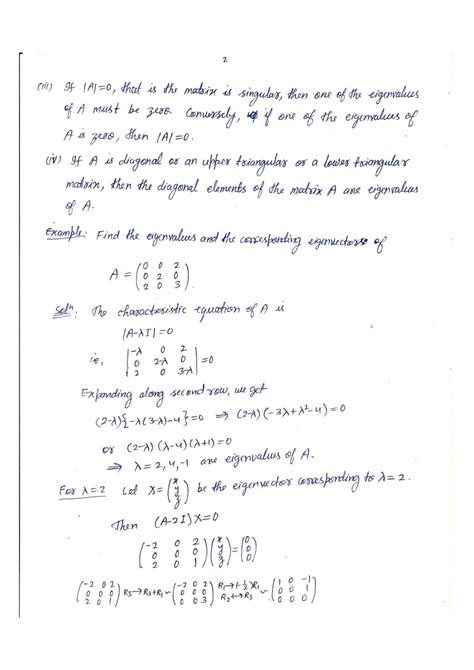 2
(iii) If |A|=0, that is the matrix is singular, then one of the eigenvalues
of A must be zero. Conversely, if one of the eigenvalues of
A is zero, then |A|=0.
(iv) If A is diagonal or an upper triangular or a lower triangular
matrix, then the diagonal elements of the matrix A are eigenvalues
of A.
Example: Find the eigenvalues and the corresponding eigenvectors of
A = (0 0 2
0 2 0
2 0 3).
Solⁿ: The characteristic equation of A is
|A-λI|=0
ie, |-λ 0 2
0 2-λ 0
2 0 3-λ| =0
Expanding along second row, we get
(2-λ){-λ(3-λ)-4}=0 ⇒ (2-λ)(-3λ+λ²-4)=0
or (2-λ)(λ-4)(λ+1)=0
⇒ λ=2,4,-1 are eigenvalues of A.
For λ=2 Let X=(x
y
z) be the eigenvector corresponding to λ=2.
Then (A-2I)X=0
(-2 0 2
0 0 0
2 0 1)(x
y
z)=(0
0
0)
(-2 0 2
0 0 0
2 0 1) R₃→R₃+R₁ ~ (-2 0 2
0 0 0
0 0 3) R₁→(-½)R₁
R₂↔R₃ ~ (1 0 -1
0 0 1
0 0 0)